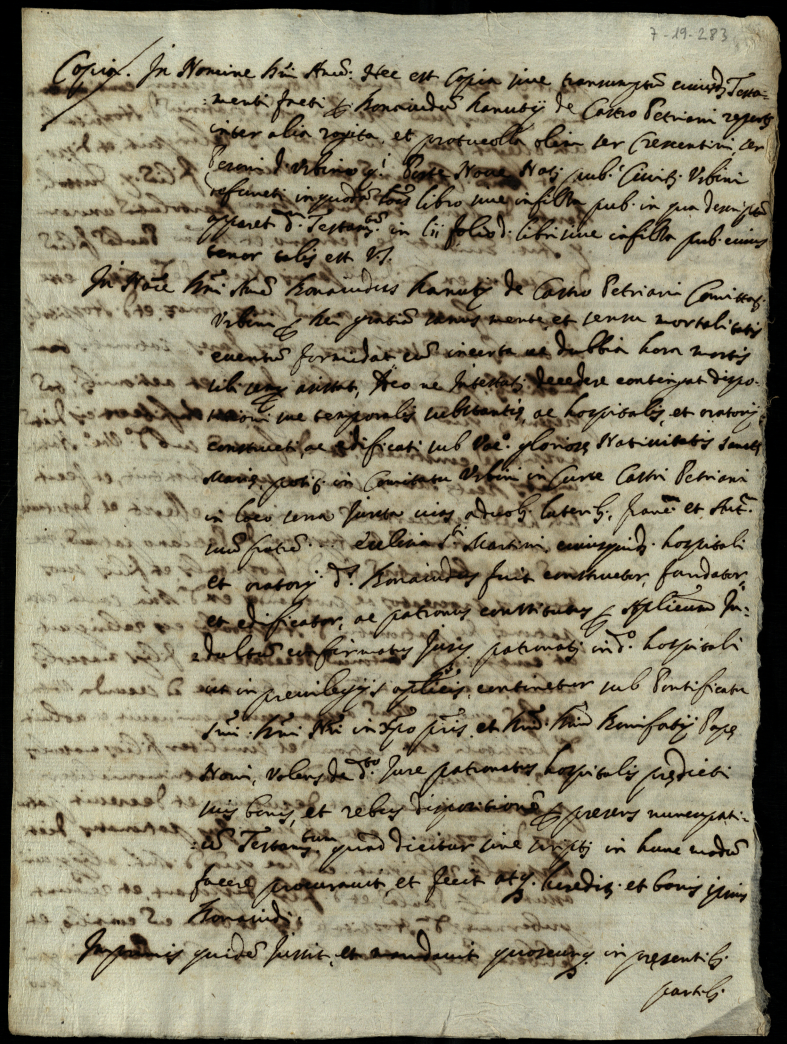 7-19-283
Copia. In Nomine Dñi Amen. Hec est Copia sive transumptũ cuiusd. Testa=
menti facti Bonaiudũ Hanutij de Castro Petriani reperti
inter alia rogita, et protocolla olim ser Crescentini ser
d. Urbino q. Porte Nove Notj pub. Civit. Urbini
defuncti in quodã libro sive infilsa pub. in qua descriptũ
apparet d. Testam.tũ in lij folio d. libri sive infilsa pub. cuius
tenor talis est Vz.
In Noie Dñi Amẽ Bonaiudus Hanutij de Castro Petriani Comittat.
Urbini dei gratiã sanus mente, et sensu mortalitatis
eventũ formidat cũ incerta ut dubbia hora mortis
sibi semp assistat, Aeo ne Intestatj decedere contingat dispo=
sue temporalis ac hospitalis, et oratorij
constructi, ac edificati sub Voc. gloriose Nativitatis Sancte
Marie in Comitatu Urbini in Curte Castri Petriani
in loco Juxta vias, a duob. laterib. Franc. et Ant.
fratres ecclesia S.ti Martini cuiusquid. hospitali
et oratorij d. Bonaiudus fuit constructor, fundator,
et edificator, ac patronus constitutus Apllicum In=
dultum confirmatus Juris patronatj in d.o hospitali
ut in previlegijs aplicis continetur sub Pontificatu
Smi. Dñi Nri in Xpo pris, et Dñi Dñi Bonifatij Pape
Noni, Volens de d.to Jure patronatus hospitalis predicti
suis bonis, et rebus dispositionẽ presens nuncupati=
vũ Testamtum quod dicitur sine scriptj in hunc modũ
facere procuravit, et fecit atq. heredit. et bonis ipsius
Bonaiudi.
Imprimis quidẽ Jussit, et mandavit quoscunq. in presentib.
partib.